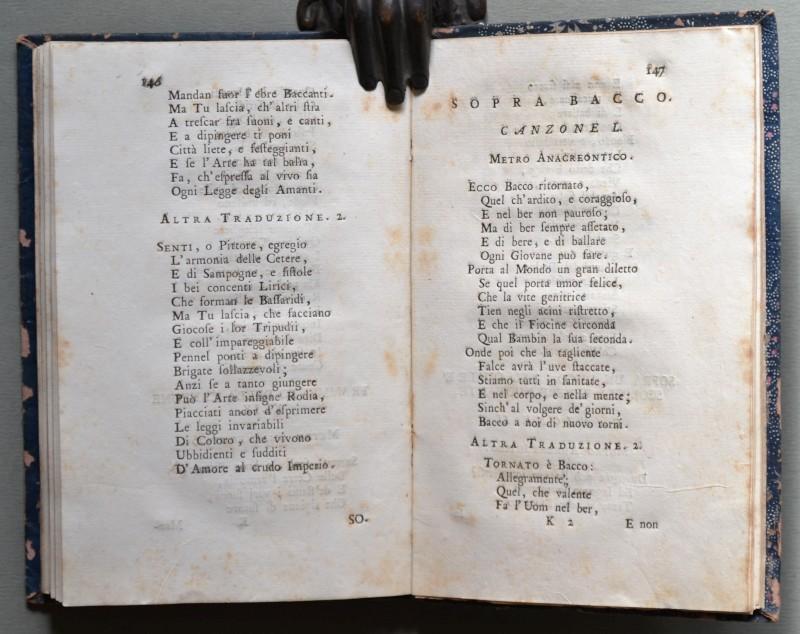 146
Mandan fuor l'ebre Baccanti.
Ma Tu lascia, ch'altri stia
A trescar fra suoni, e canti,
E a dipingere ti poni
Città liete, e festeggianti,
E se l'Arte ha tal balìa,
Fa, ch'espressa al vivo sia
Ogni Legge degli Amanti.
ALTRA TRADUZIONE. 2.
SENTI, o Pittore, egregio
L'armonia delle Cetere,
E di Sampogne, e fistole
I bei concenti Lirici,
Che forman le Bassaridi,
Ma Tu lascia, che facciano
Giocose i lor Tripudii,
E coll'impareggiabile
Pennel ponti a dipingere
Brigate sollazzevoli;
Anzi se a tanto giungere
Può l'Arte insigne Rodia,
Piacciati ancor d'esprimere
Le leggi invariabili
Di Coloro, che vivono
Ubbidienti e sudditi
D'Amore al crudo Imperio.
SO.
147
SOPRA BACCO.
CANZONE L.
METRO ANACREONTICO.
ECCO Bacco ritornato,
Quel ch'ardito, e coraggioso,
E nel ber non pauroso;
Ma di ber sempre assetato,
E di bere, e di ballare
Ogni Giovane può fare.
Porta al Mondo un gran diletto
Se quel porta umor felice,
Che la vite genitrice
Tien negli acini ristretto,
E che il Fiocine circonda
Qual Bambin la sua seconda.
Onde poi che la tagliente
Falce avrà l'uve staccate,
Stiamo tutti in sanitate,
E nel corpo, e nella mente;
Sinch'al volgere de'giorni,
Bacco a noi di nuovo torni.
ALTRA TRADUZIONE. 2.
TORNATO è Bacco:
Allegramente;
Quel, che valente
Fa l'Uom nel ber,
K 2 E non